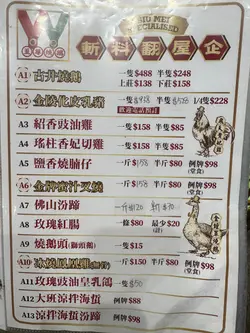 BIG MEAL
SPECIALISED
斬料翻屋企
A1 古井燒鵝 一隻$488 半隻$248
上莊$138 下莊$158
A2 金陵化皮乳豬 一隻 半隻 1/4隻$228
歡迎電話預訂
A3 紹香豉油雞 一隻$158 半隻$85
A4 瑤柱香妃切雞 一隻$158 半隻$85
A5 鹽香燒腩仔 一斤$158 半斤$80 例牌$98
(堂食)
A6 金牌蜜汁叉燒 一斤$158 半斤$80 例牌$98
(堂食)
A7 佛山汾蹄
A8 玫瑰紅腸 一條$80 最少$20
A9 燒鵝頭(獅頭鵝) 一隻$15
A10 冰燒鳳凰雞 一斤$158 半斤$80 例牌$98
A11 玫瑰豉油皇乳鴿 一隻$50
A12 大班涼拌海蜇 例牌$88
A13 涼拌海蜇汾蹄 例牌$98